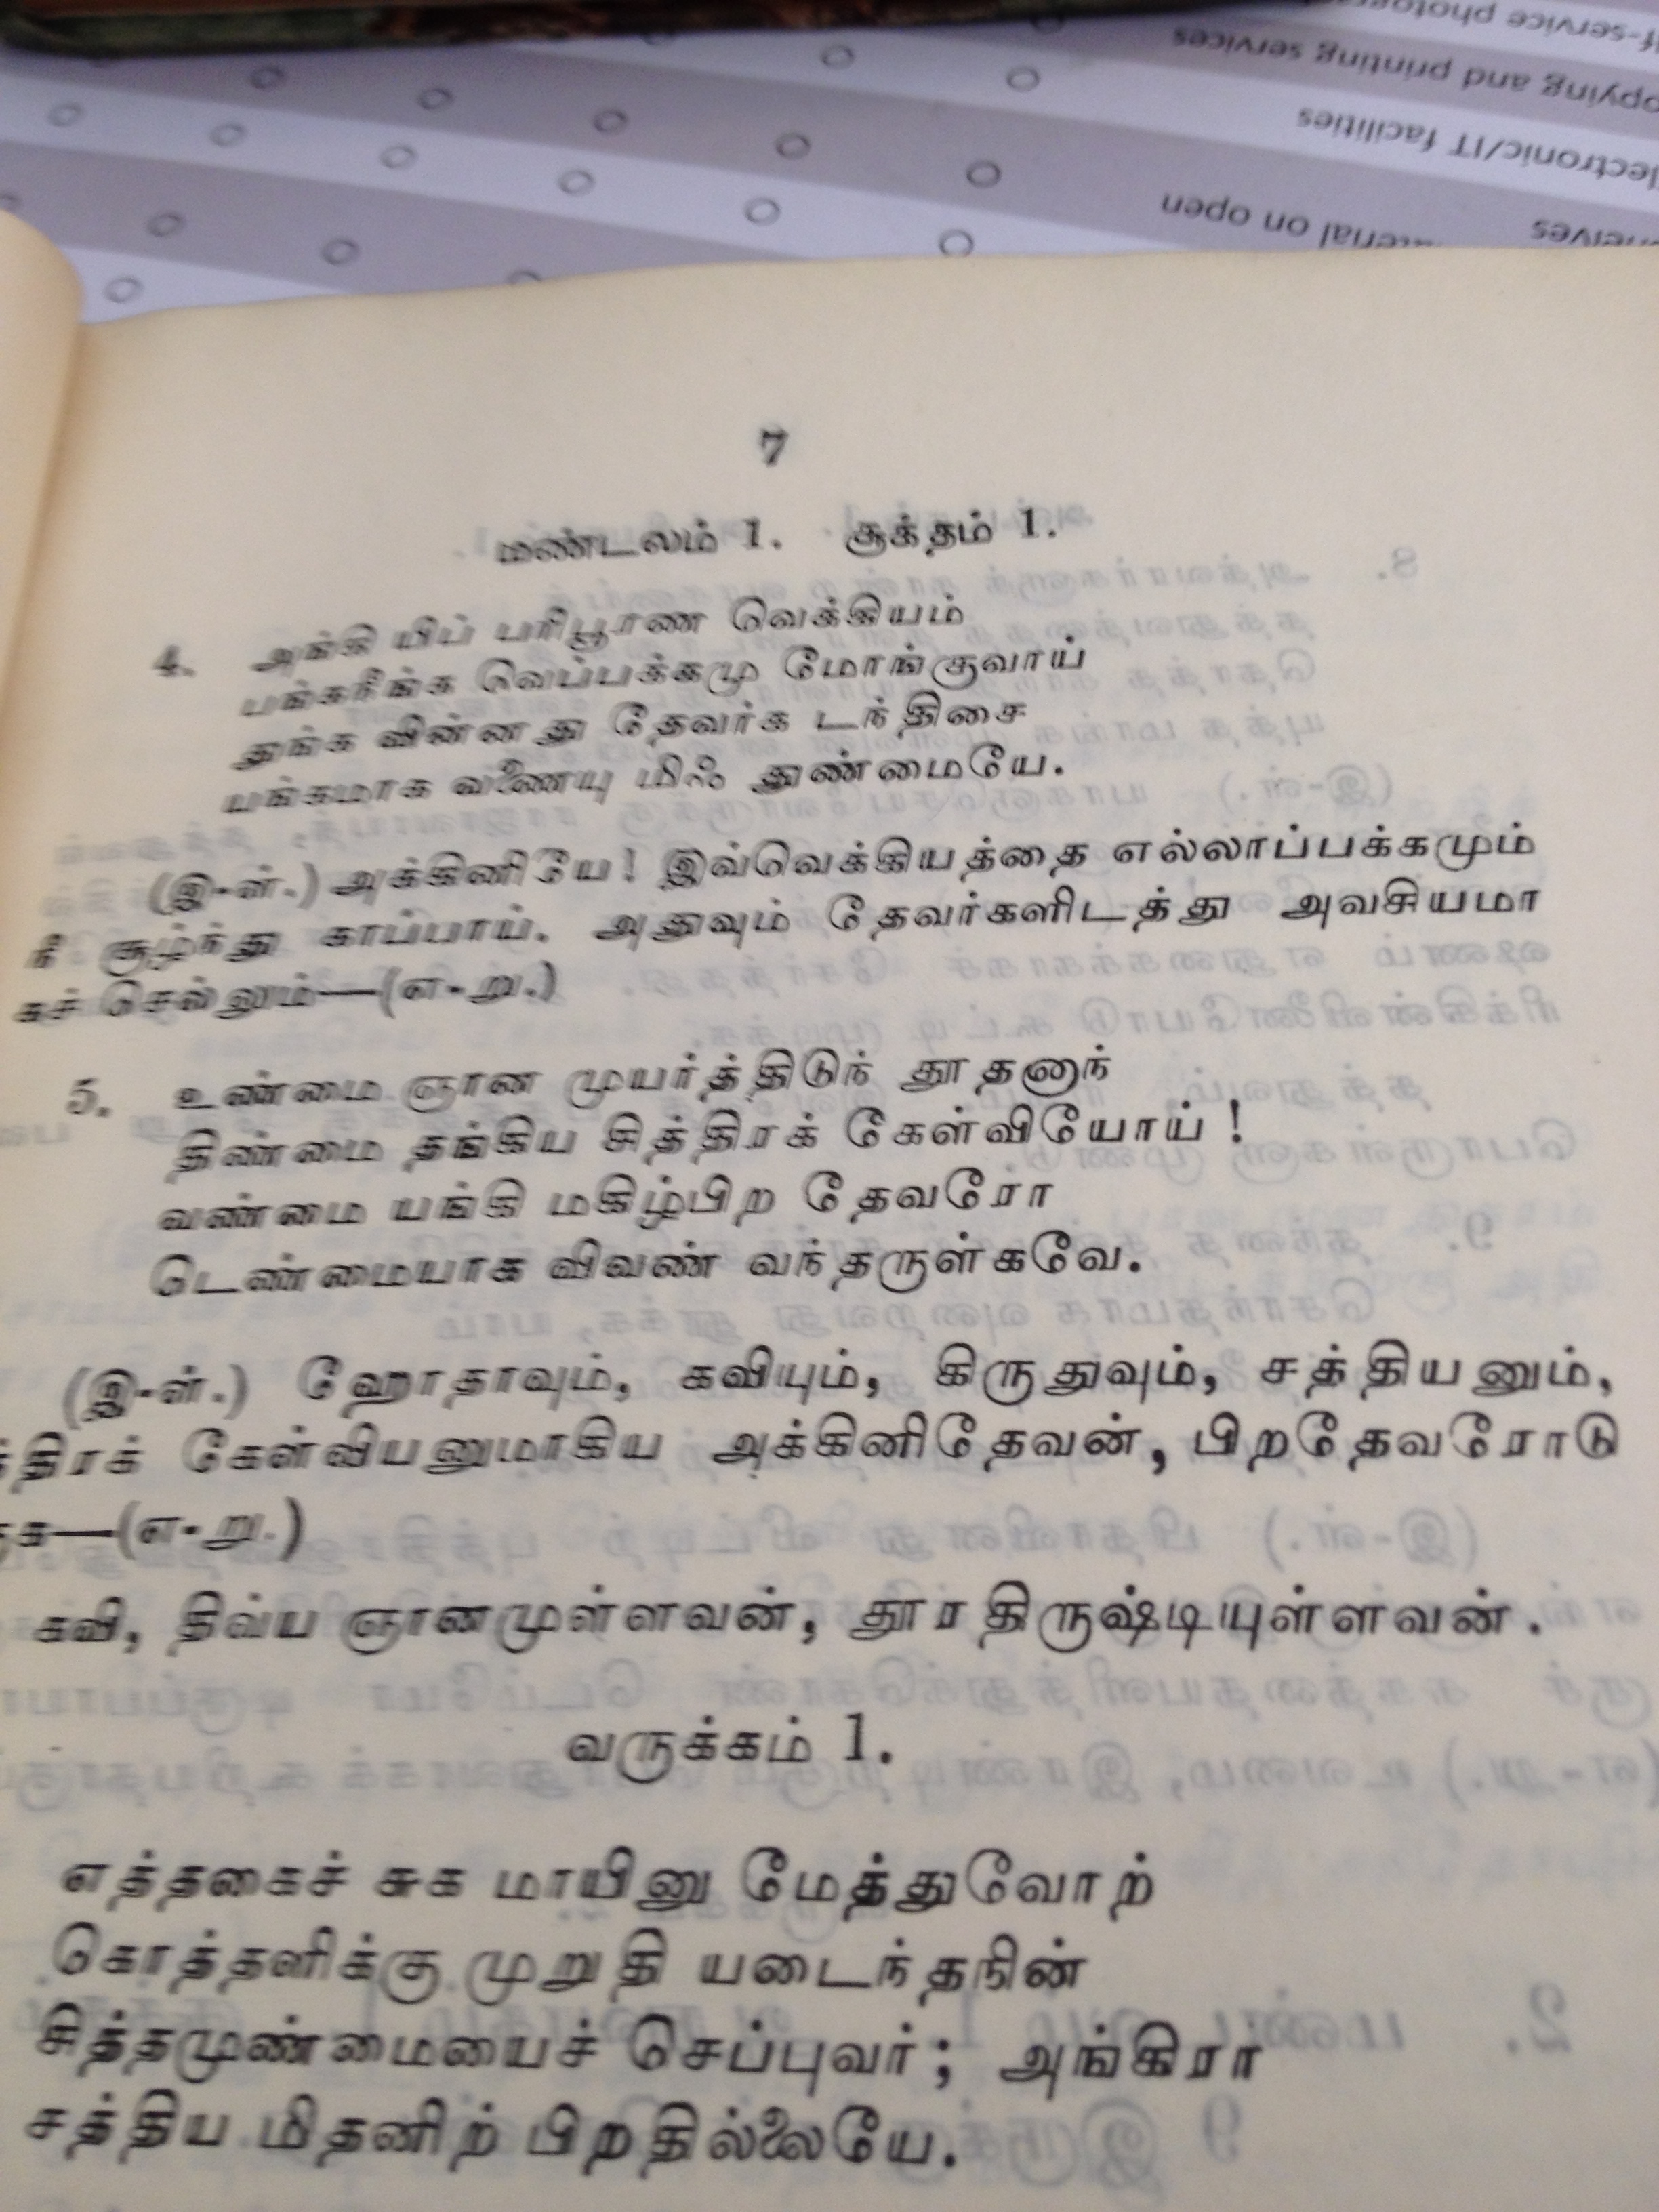 lf-service photocop
opying and printing services
lectronic/IT facilities
helves
aterial on open
7
மண்டலம் 1. சூக்தம் 1.
4. அங்கி யிப் பரிபூரண வெக்கியம்
பங்கநீங்க வெப்பக்கமு மோங்குவாய்
துங்க விண்னது தேவர்க டந்திசை
யங்கமாக வணையு மிஃ துண்மையே.
(இ-ள்.) அக்கினியே! இவ்வெக்கியத்தை எல்லாப்பக்கமும்
நீ சூழ்ந்து காப்பாய். அதுவும் தேவர்களிடத்து அவசியமா
கச் செல்லும்—(எ-று.)
5. உண்மை ஞான முயர்த்திடுந் தூதனுந்
திண்மை தங்கிய சித்திரக் கேள்வியோய்!
வண்மை யங்கி மகிழ்பிற தேவரோ
டெண்மையாக விவண் வந்தருள்கவே.
(இ-ள்.) ஹோதாவும், கவியும், கிருதுவும், சத்தியனும்,
த்திரக் கேள்வியனுமாகிய அக்கினிதேவன், பிறதேவரோடு
க—(எ-று.)
கவி, திவ்ய ஞானமுள்ளவன், தூரதிருஷ்டியுள்ளவன்.
வருக்கம் 1.
எத்தகைச் சுக மாயினு மேத்துவோற்
கொத்தளிக்கு முறுதி யடைந்தநின்
சித்தமுண்மையைச் செப்புவர்; அங்கிரா
சத்திய மிதனிற் பிறதில்லையே.